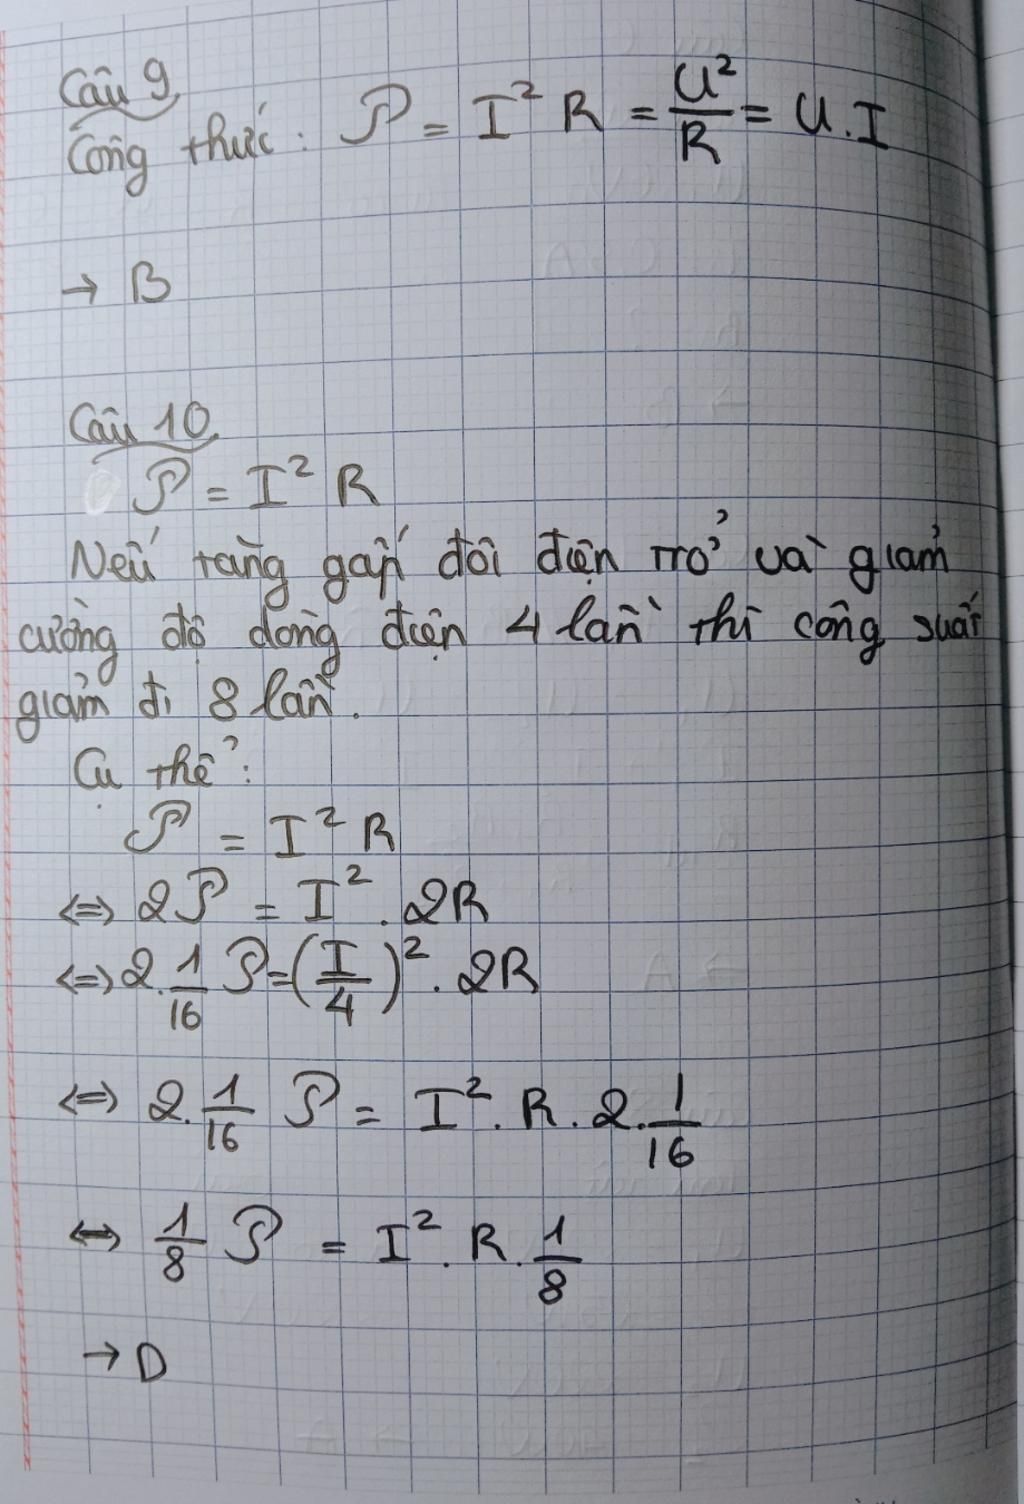 Câu 9
Công thức: P = I² R = U²/R = U.I
→ B
Câu 10
P = I² R
Nếu tăng gấp đôi điện trở và giảm
cường độ dòng điện 4 lần thì công suất
giảm đi 8 lần.
Cụ thể:
P = I² R
⇔ 2P = I² . 2R
⇔ 2.1/16 P = (I/4)² . 2R
⇔ 2.1/16 P = I² . R . 2.1/16
⇔ 1/8 P = I² . R . 1/8
→ D